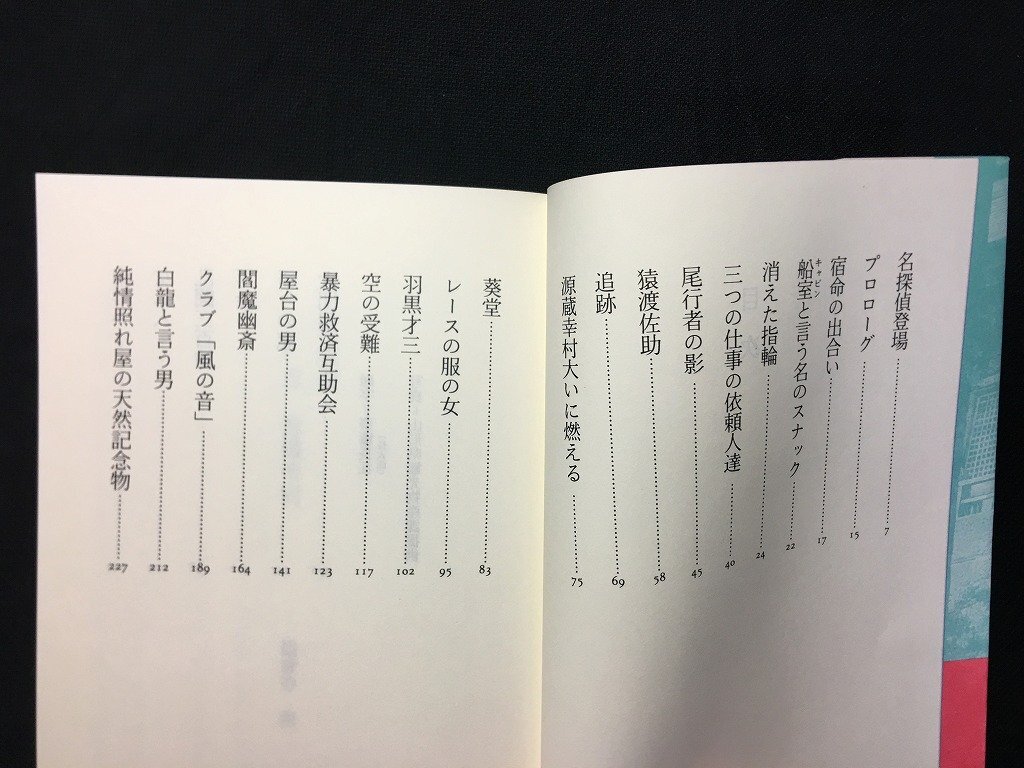 名探偵登場……7
プロローグ……15
宿命の出合い……17
船室と言う名のスナック……22
キャビン
消えた指輪……24
三つの仕事の依頼人達……40
尾行者の影……45
猿渡佐助……58
追跡……69
源蔵幸村大いに燃える……75
葵堂……83
レースの服の女……95
羽黒才三……102
空の受難……117
暴力救済互助会……123
屋台の男……141
閻魔幽斎……164
クラブ「風の音」……189
白龍と言う男……212
純情照れ屋の天然記念物……227